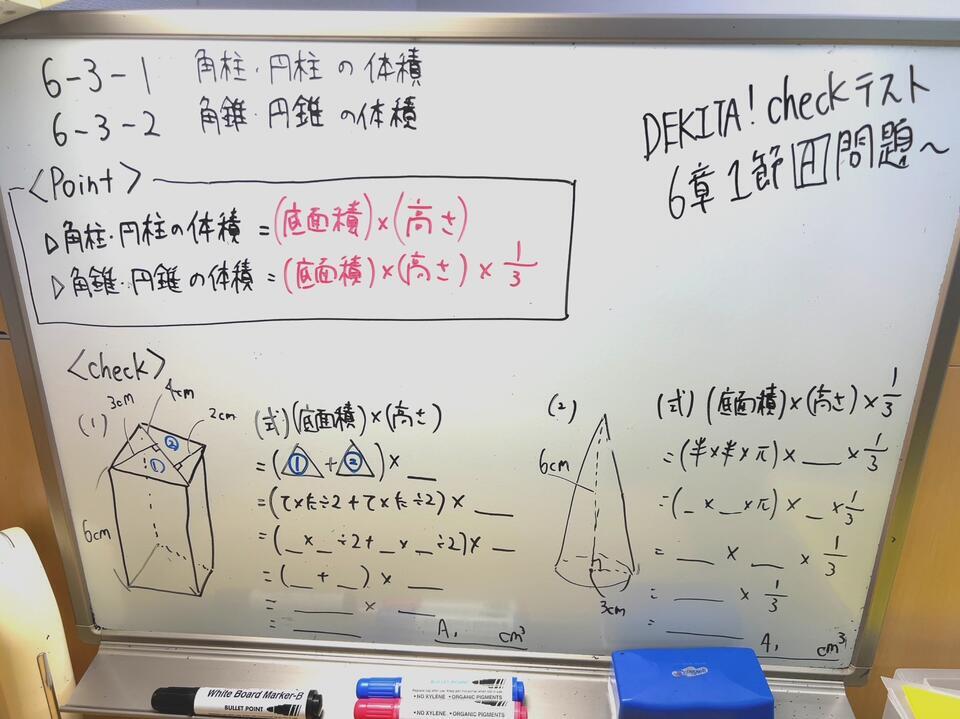 6-3-1 角柱・円柱の体積
6-3-2 角錐・円錐の体積
DEKITA! checkテスト
6章1節 問題〜
<Point>
▷角柱・円柱の体積 =(底面積)×(高さ)
▷角錐・円錐の体積 =(底面積)×(高さ)×1/3
<check>
(1)
3cm
4cm
2cm
①
②
6cm
(式)(底面積)×(高さ)
=(①+②)×__
=(て×た÷2+て×た÷2)×__
=(_×_÷2+_×_÷2)×_
=(_+_)×__
=__×__
=____
A, cm³
(2)
6cm
3cm
(式)(底面積)×(高さ)×1/3
=(半×半×π)×__×1/3
=(_×_×π)×_×1/3
=__×__×1/3
=__×1/3
=____
A, cm³
White Board Marker-B
BULLET POINT
BULLET POINT
・NO XYLENE ・ORGANIC PIGMENTS
・NO XYLENE ・ORGANIC PIGMENTS